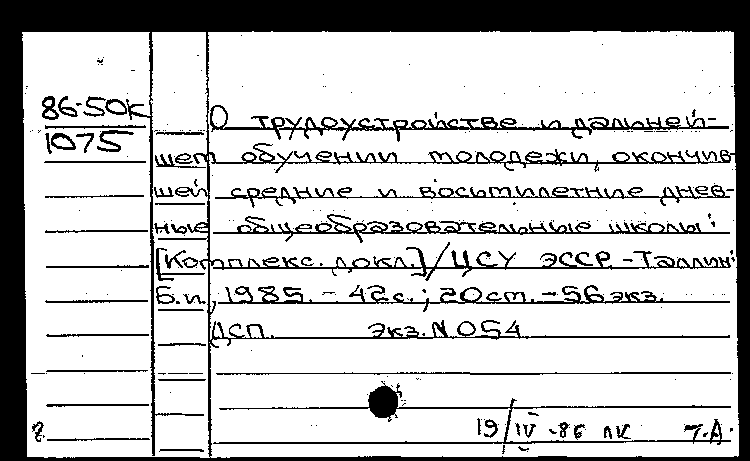 86-50к
1075
О трудоустройстве и дальней-
шем обучении молодежи, окончив-
шей средние и восьмилетние днев-
ные общеобразовательные школы:
[Комплекс. докл.]/ЦСУ ЭССР.-Таллин:
Б.и., 1985.-42с.; 20см.-56экз.
ДСП. Экз.N054
19/IV-86 лк т.А.